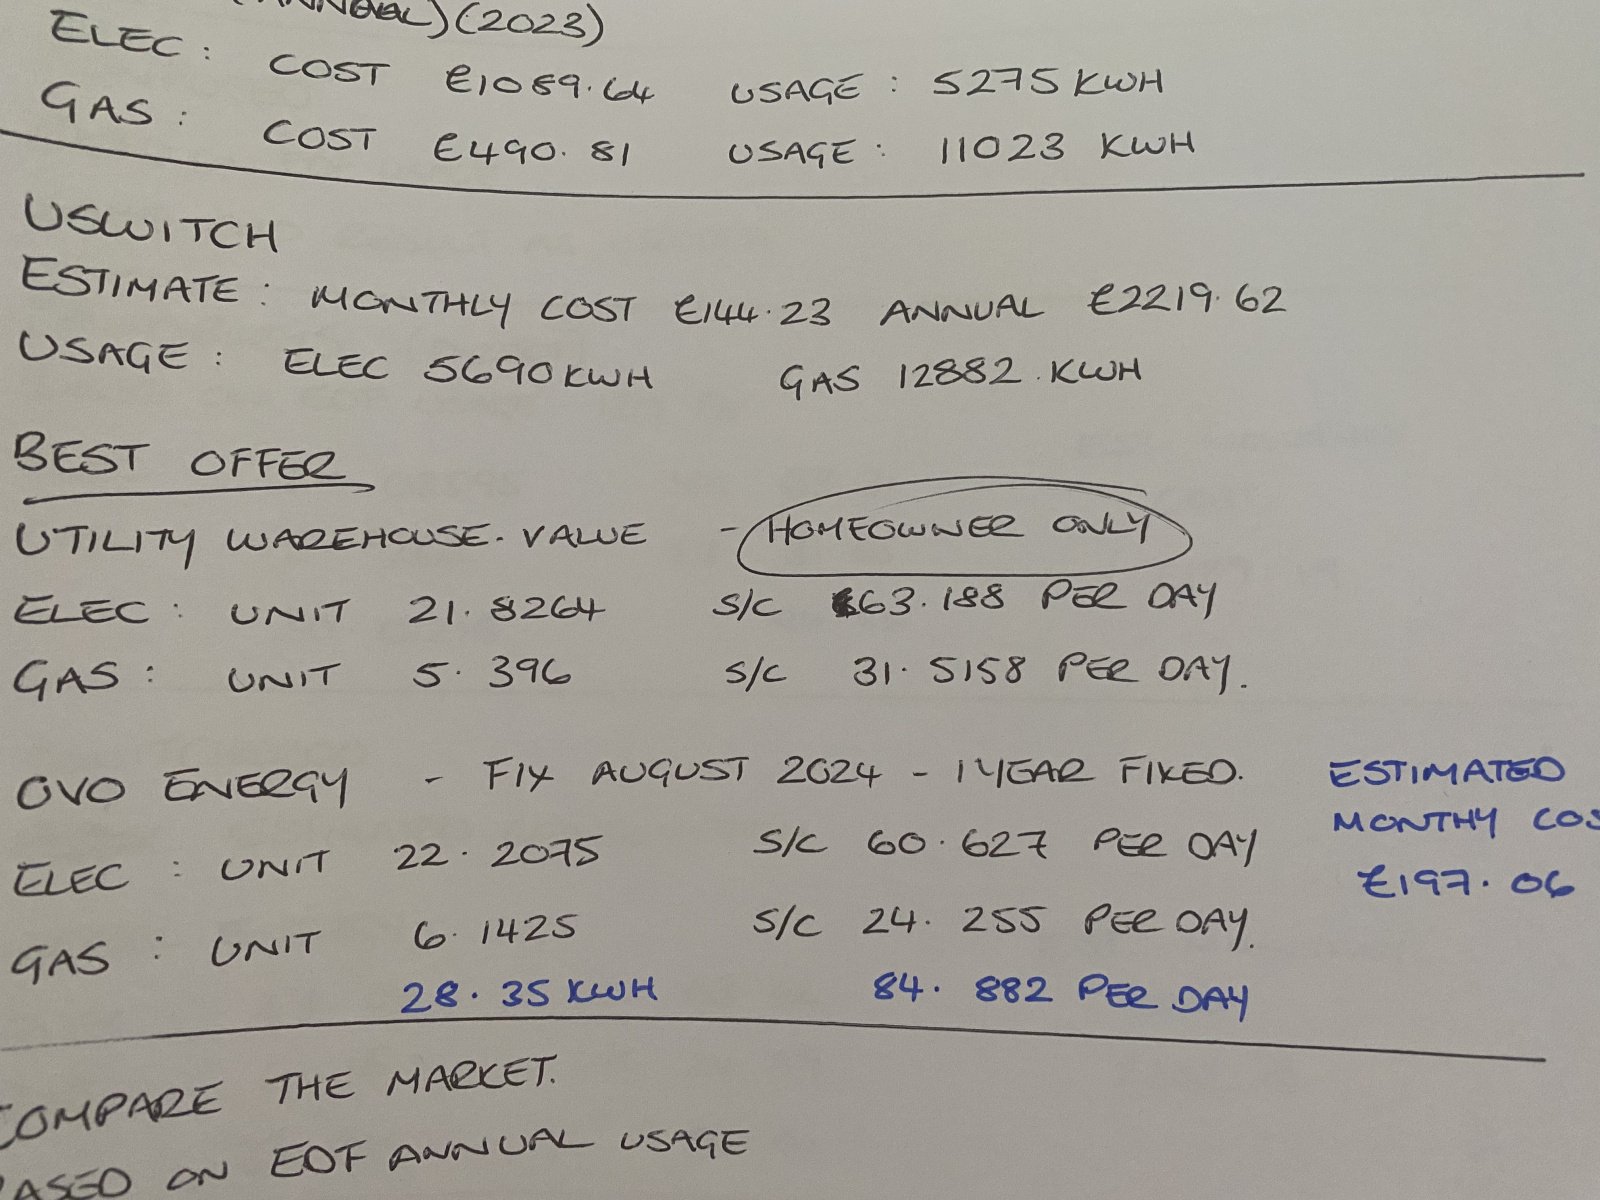 (ANNUAL) (2023)
ELEC: COST £1089.64 USAGE: 5275 KWH
GAS: COST £490.81 USAGE: 11023 KWH
USWITCH
ESTIMATE: MONTHLY COST £144.23 ANNUAL £2219.62
USAGE: ELEC 5690KWH GAS 12882.KWH
BEST OFFER
UTILITY WAREHOUSE. VALUE - HOMEOWNER ONLY
ELEC: UNIT 21.8264 S/C 63.188 PER DAY
GAS: UNIT 5.396 S/C 31.5158 PER DAY.
OVO ENERGY - FIX AUGUST 2024 - 1 YEAR FIXED. ESTIMATED
MONTHY COS
ELEC: UNIT 22.2075 S/C 60.627 PER DAY £197.06
GAS: UNIT 6.1425 S/C 24.255 PER DAY.
28.35 KWH 84.882 PER DAY
COMPARE THE MARKET.
BASED ON EDF ANNUAL USAGE